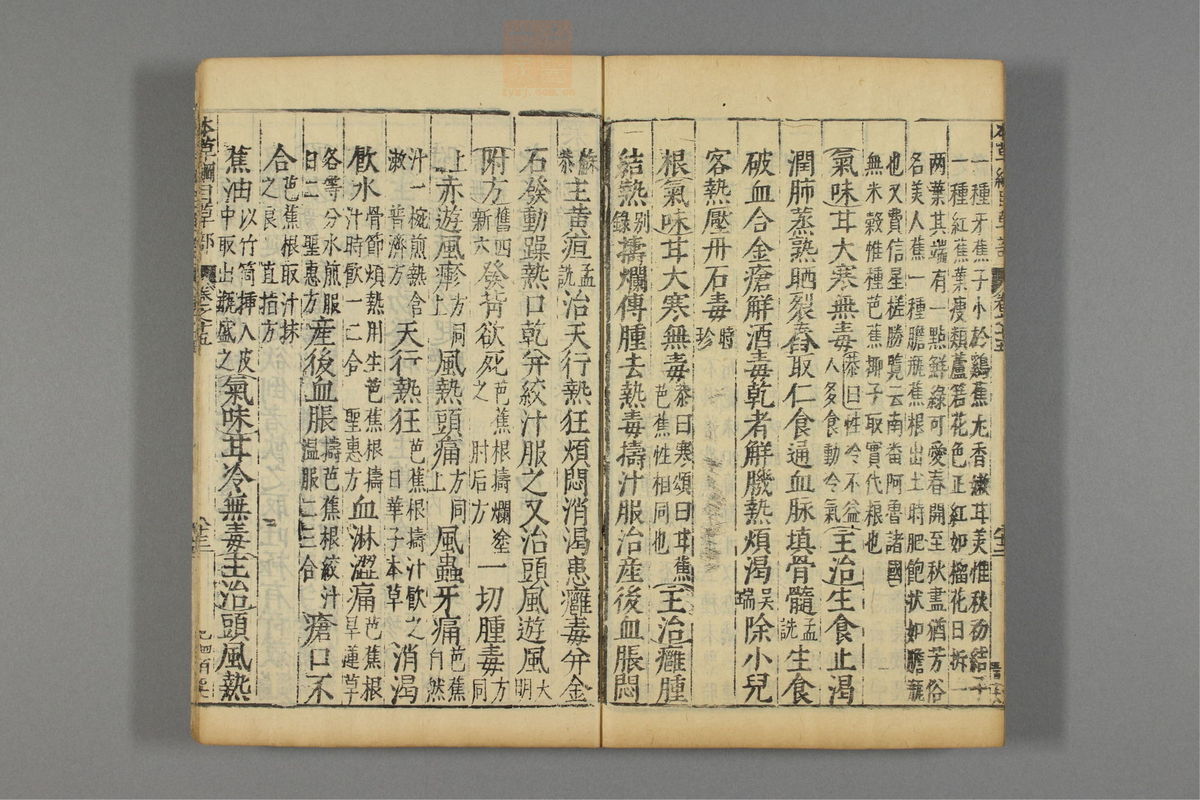 一種牙蕉子小於鷄蕉尤香嫩甘美惟秋初結子
一種紅蕉葉瘦類蘆箬花色正紅如榴花日拆一
兩葉其端有一點鮮綠可愛春開至秋盡猶芳俗
名美人蕉一種膽瓶蕉根出土時肥飽狀如膽瓶
也又費信星槎勝覽云南番阿魯諸國
無米穀惟種芭蕉椰子取實代根也
氣味甘大寒無毒恭曰性冷不益人多食動冷氣主治生食止渴
潤肺蒸熟晒裂舂取仁食通血脉填骨髓孟詵生食
破血合金瘡解酒毒乾者解肌熱煩渴吳瑞除小兒
客熱壓丹石毒時珍
根氣味甘大寒無毒恭曰寒頌曰甘蕉芭蕉性相同也主治癰腫
結熱別錄擣爛傅腫去熱毒擣汁服治産後血脹悶
蘇恭主黄疸孟詵治天行熱狂煩悶消渴患癰毒并金
石發動躁熱口乾并絞汁服之又治頭風遊風大明
附方舊四新六發背欲死芭蕉根擣爛塗之肘后方一切腫毒方同
上赤遊風瘮方同上風熱頭痛方同上風蟲牙痛芭蕉自然
汁一椀煎熱含漱普濟方天行熱狂芭蕉根擣汁飲之日華子本草消渴
飲水骨節煩熱用生芭蕉根擣汁時飲一二合聖惠方血淋澀痛芭蕉根旱蓮草
各等分水煎服日二聖惠方産後血脹擣芭蕉根絞汁温服二三合瘡口不
合芭蕉根取汁抹之良直指方
蕉油以竹筒插入皮中取出瓶盛之氣味甘冷無毒主治頭風熱
本草綱目草部
卷之十五